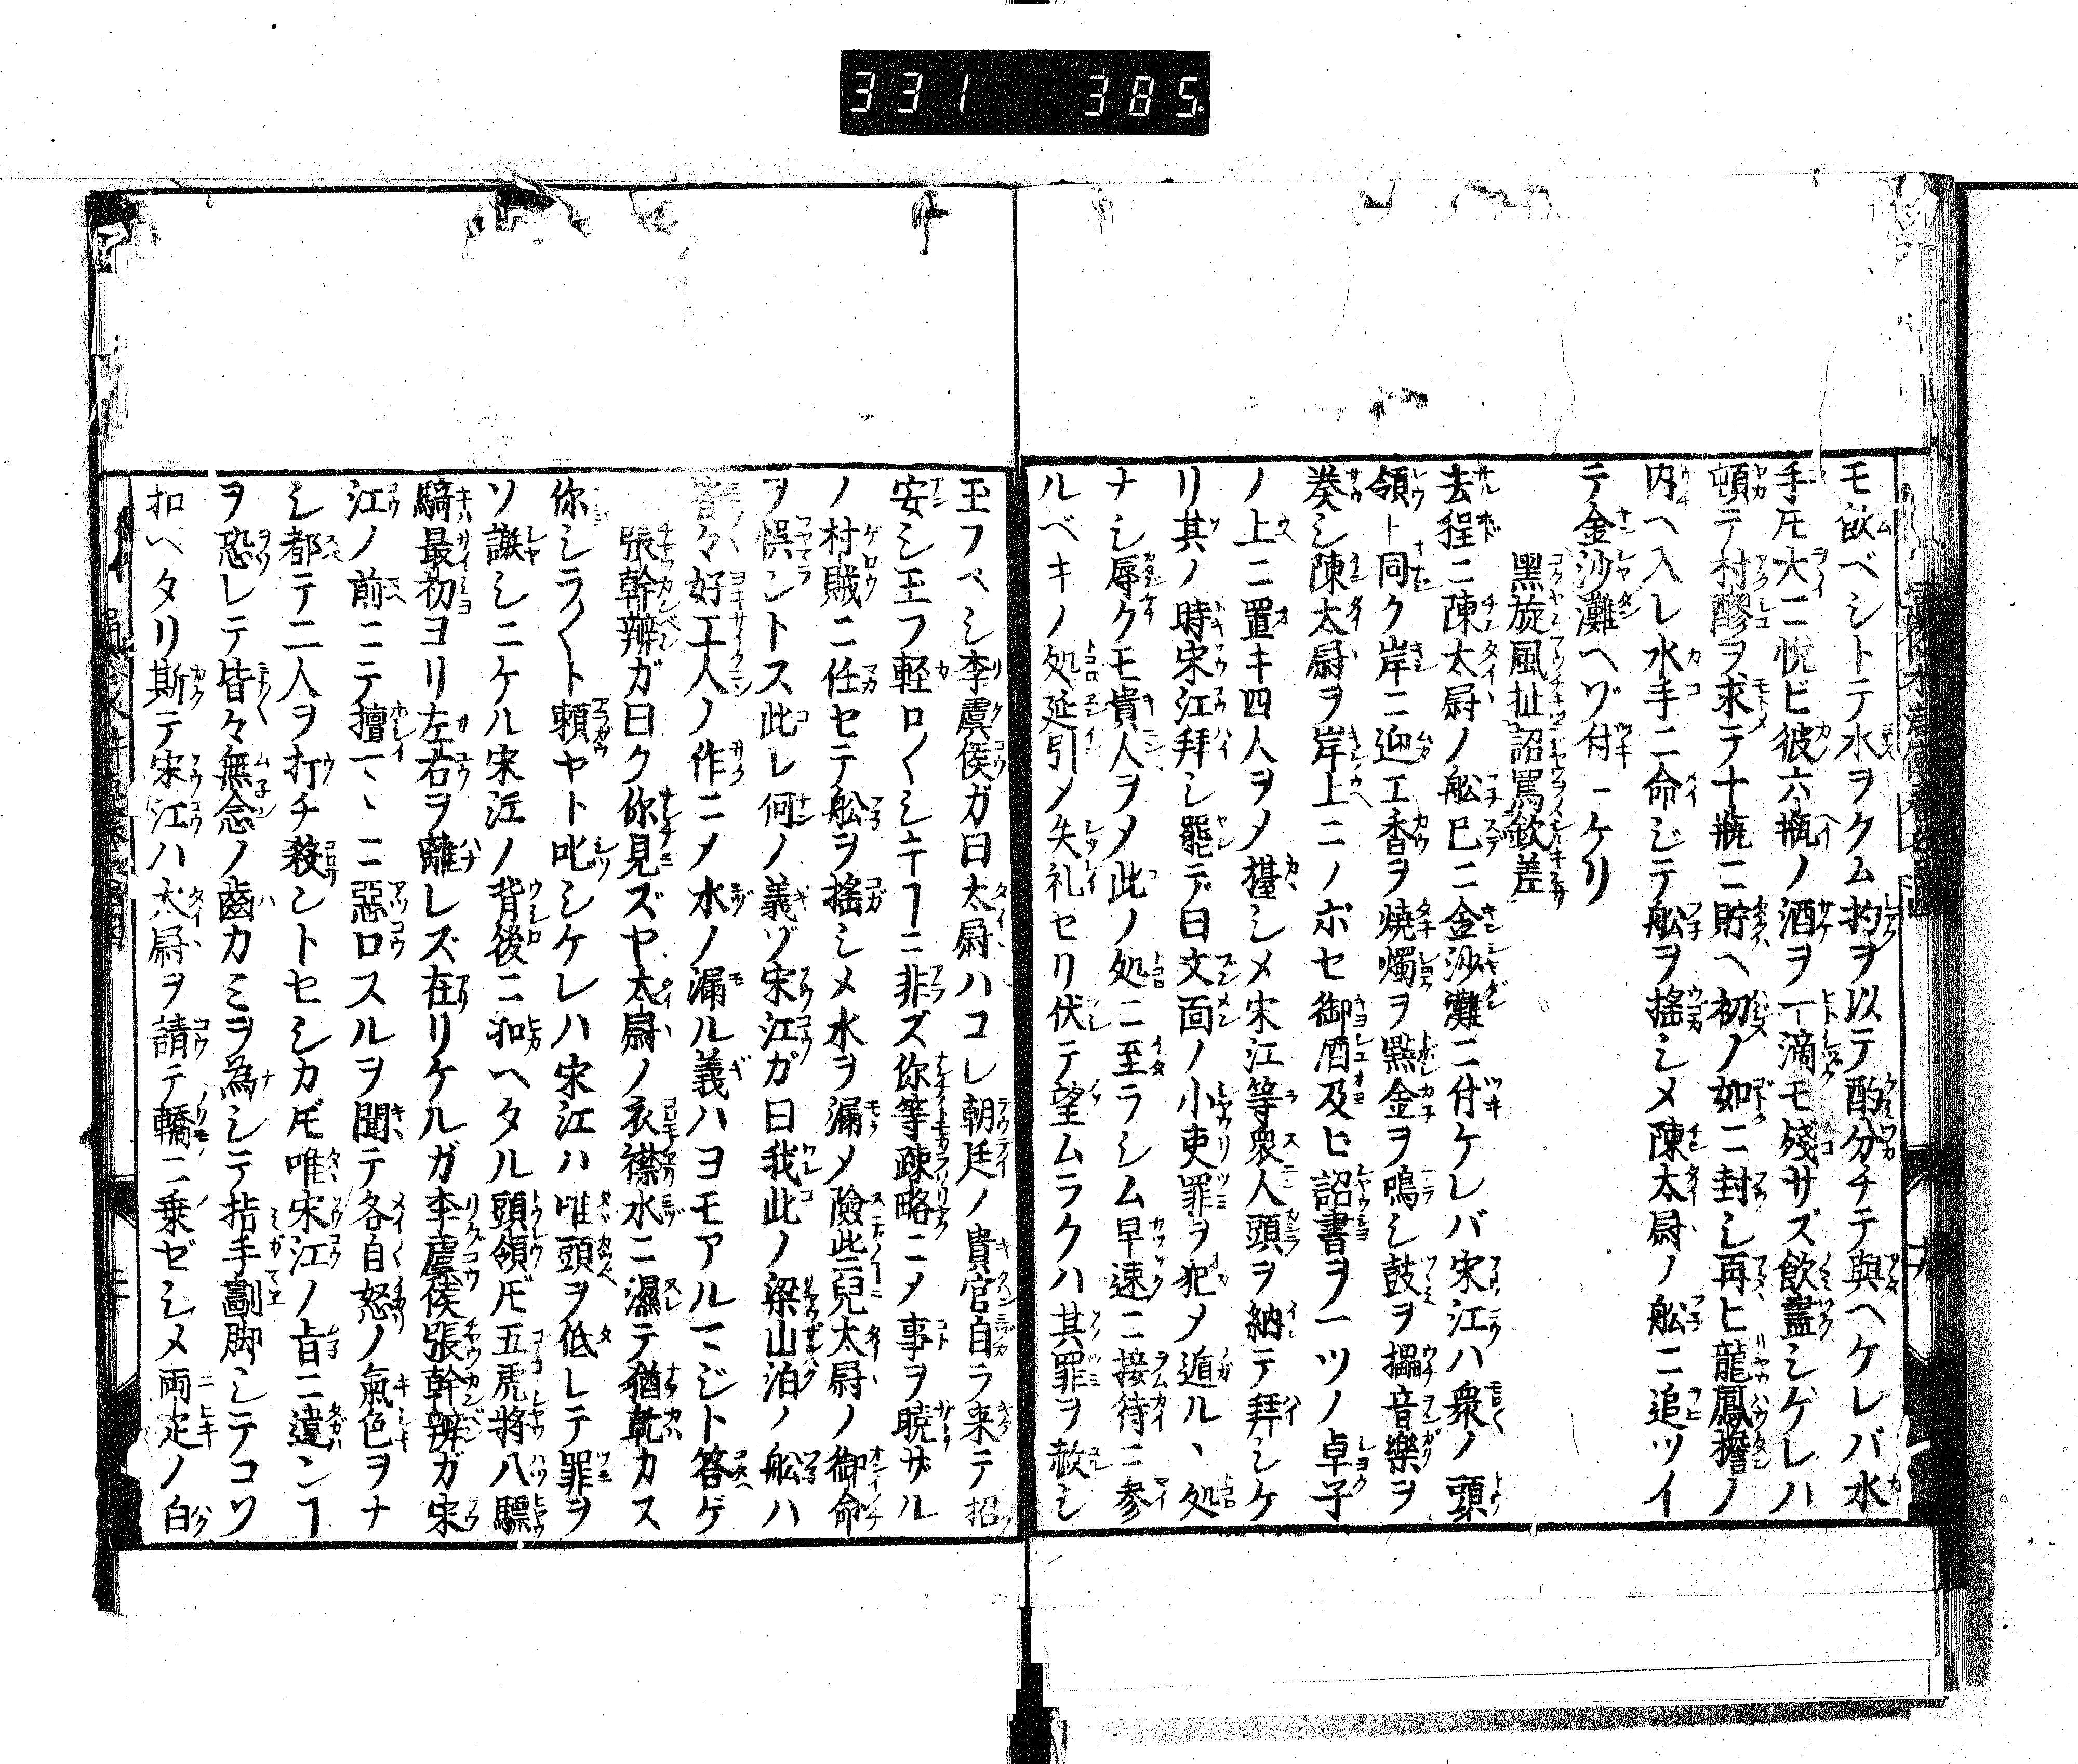 331 385
モ飲ベシトテ水ヲクム杓ヲ以テ酌分チテ與ヘケレバ水
手𪜈大ニ悦ビ彼六瓶ノ酒ヲ一滴モ殘サズ飲盡シケレハ
頓テ村醪ヲ求テ十瓶ニ貯ヘ初ノ如ニ封シ再ヒ龍鳳擔ノ
内ヘ入レ水手ニ命ジテ舩ヲ搖シメ陳太尉ノ舩ニ追ツイ
テ金沙灘ヘゾ付ニケリ
黑旋風扯詔罵欽差
去程ニ陳太尉ノ舩已ニ金沙灘ニ付ケレバ宋江ハ衆ノ頭
領ト同ク岸ニ迎エ香ヲ燒燭ヲ點金ヲ鳴シ鼓ヲ擂音樂ヲ
奏シ陳太尉ヲ岸上ニノボセ御酒及ヒ詔書ヲ一ツノ卓子
ノ上ニ置キ四人ヲメ擡シメ宋江等衆人頭ヲ納テ拜シケ
リ其ノ時宋江拜シ罷デ曰文面ノ小吏罪ヲ犯メ遁ル、処
ナシ辱クモ貴人ヲメ此ノ処ニ至ラシム早速ニ接待ニ参
ルベキノ処延引メ失礼セリ伏テ望ムラクハ其罪ヲ赦シ
玉フベシ李虞侯ガ曰太尉ハコレ朝廷ノ貴官自ラ来テ招
安シ玉フ軽ロ〱シキヿニ非ズ你等疎略ニメ事ヲ暁ザル
ノ村賊ニ任セテ舩ヲ搖シメ水ヲ漏メ險些兒太尉ノ御命
ヲ悞ントス此レ何ノ義ゾ宋江ガ曰我此ノ梁山泊ノ舩ハ
皆々好工人ノ作ニメ水ノ漏ル義ハヨモアルマジト答ゲ
張幹辨ガ曰ク你見ズヤ太尉ノ衣襟水ニ濕テ猶乾カス
你シラ〲ト頼ヤト叱シケレハ宋江ハ唯頭ヲ低レテ罪ヲ
ソ謝シニケル宋江ノ背後ニ扣ヘタル頭領𪜈五虎將八驃
騎最初ヨリ左右ヲ離レズ在リケルガ李虞侯張幹辨ガ宋
江ノ前ニテ擅マヽニ惡口スルヲ聞テ各自怒ノ氣色ヲナ
シ都テ二人ヲ打チ殺シトセシカ𪜈唯宋江ノ旨ニ違ンヿ
ヲ恐レテ皆々無念ノ齒カミヲ為シテ拈手劃脚シテコソ
扣ヘタリ斯テ宋江ハ太尉ヲ請テ轎ニ乗ゼシメ両疋ノ白